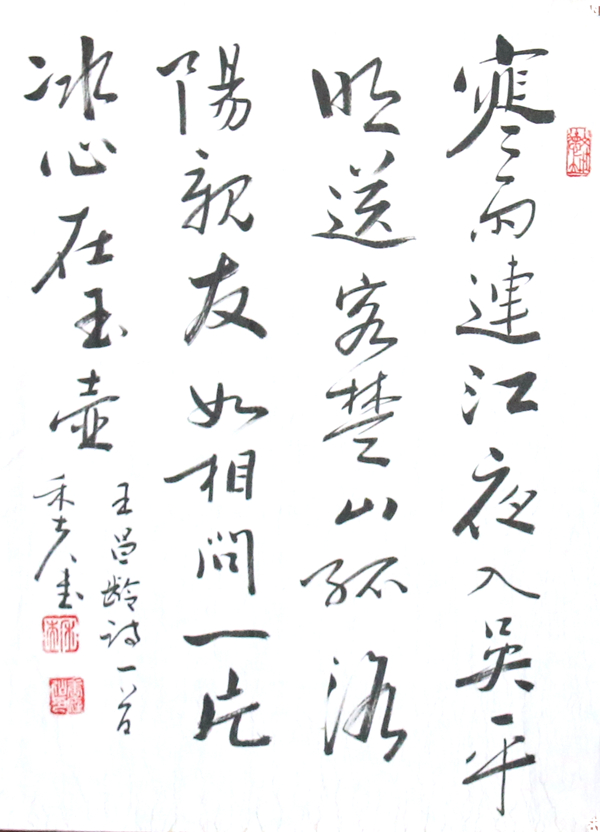 寒雨連江夜入吳平
明送客楚山孤洛
陽親友如相問一片
冰心在玉壺
王昌齡詩一首